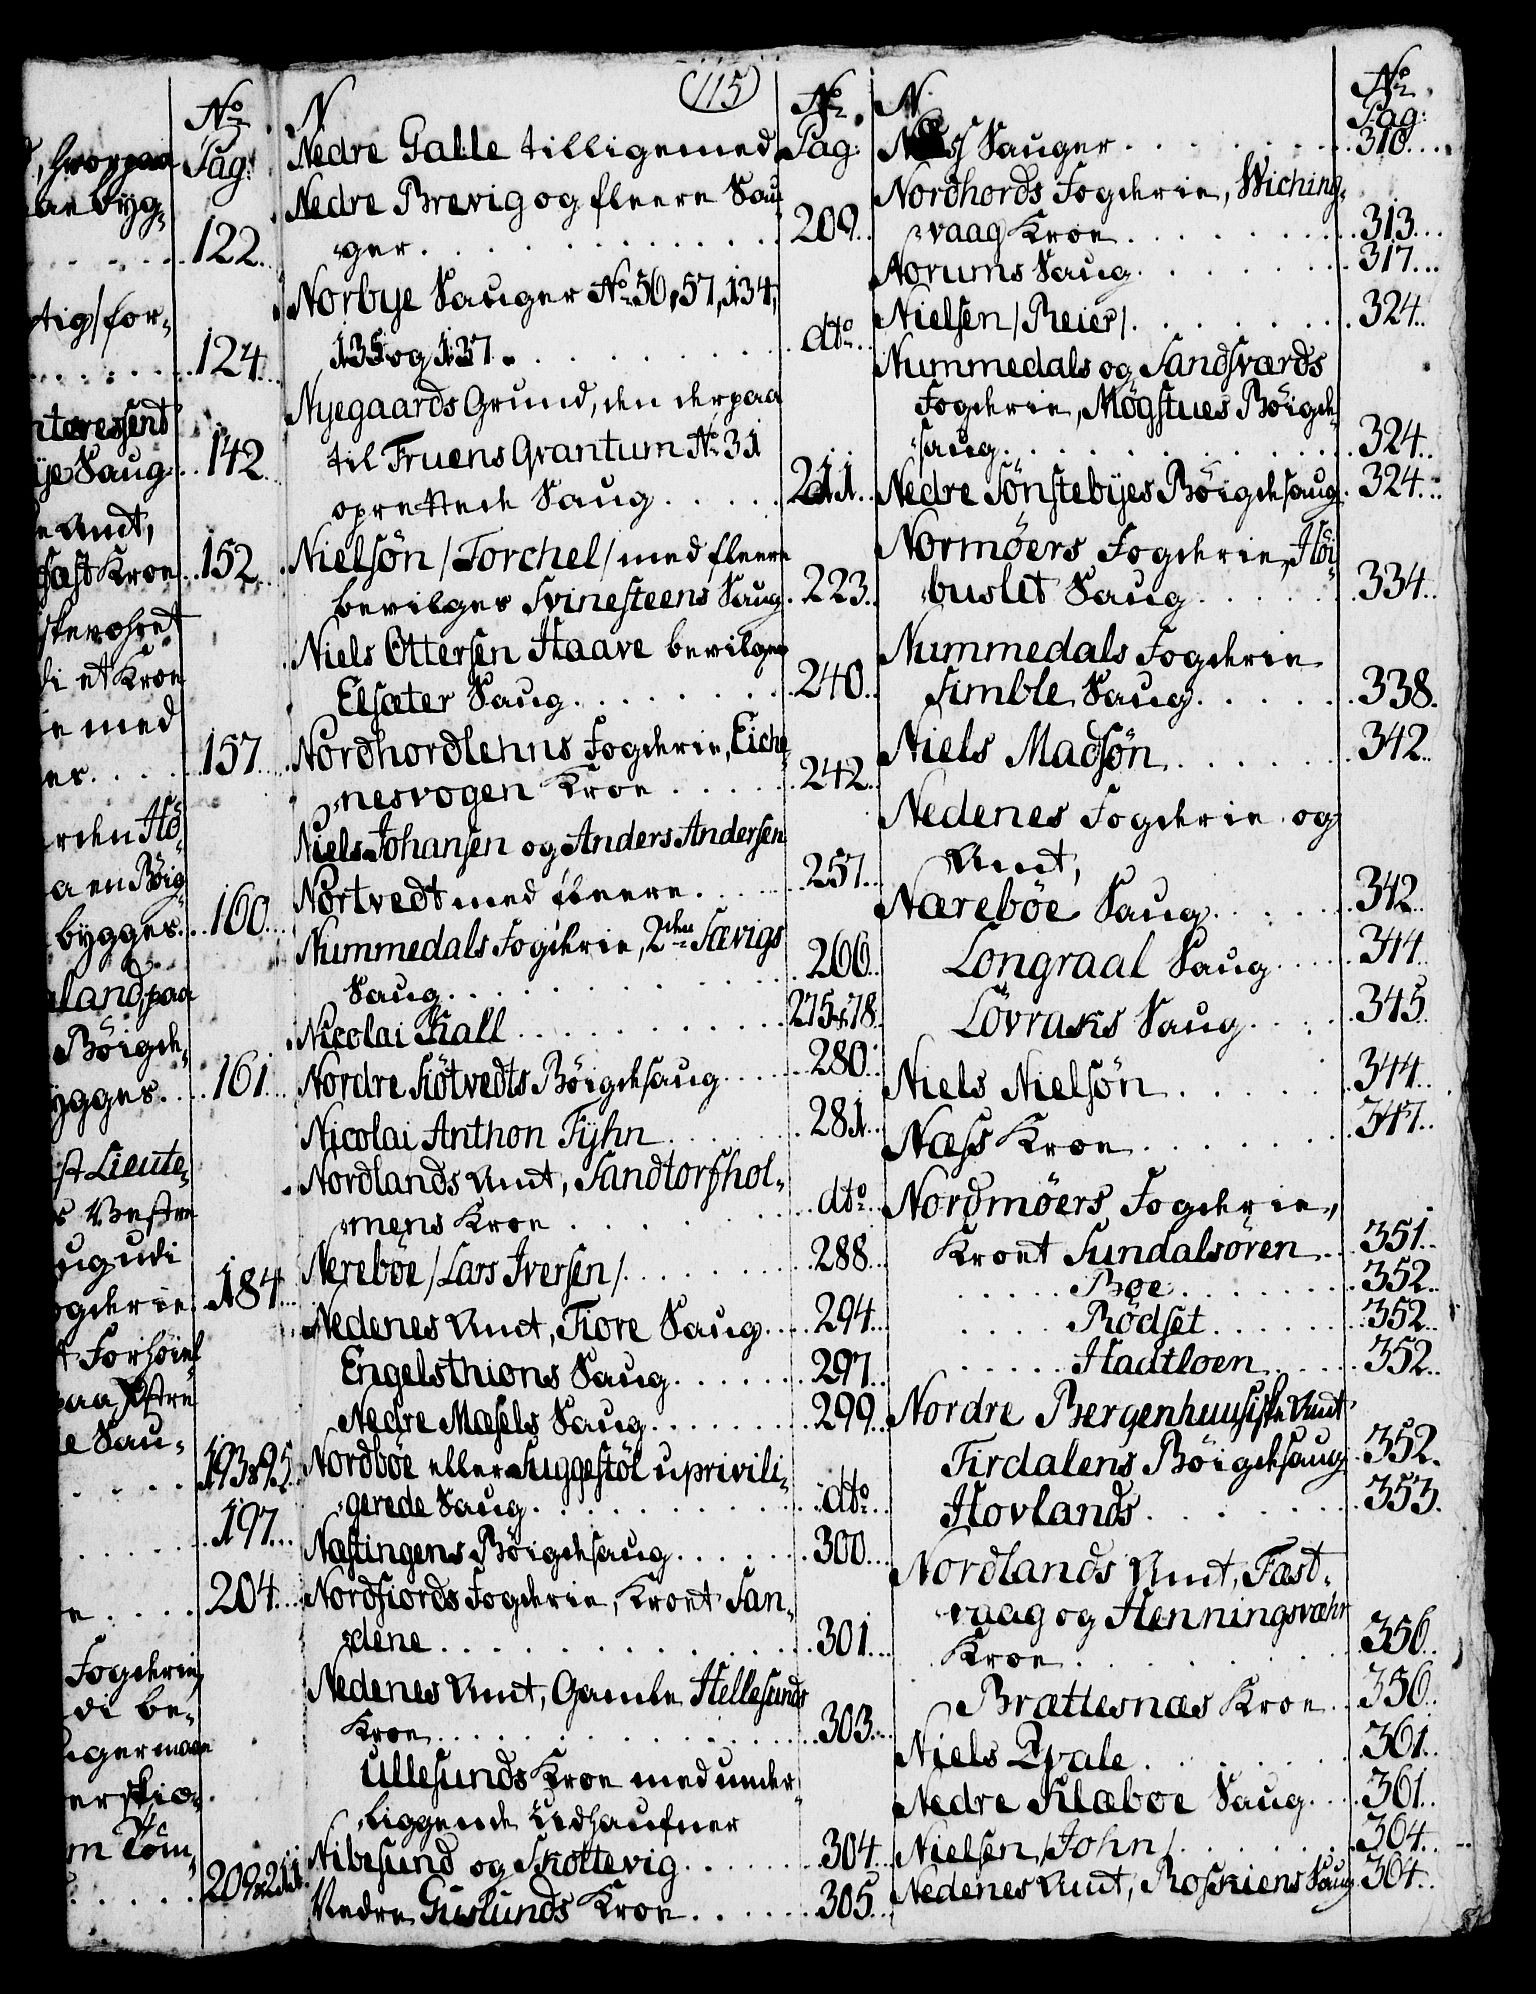 , hvorpaa
byg-
122.
tig/for-
124.
nteressent
ye Saug. 142.
Amt,
fast Kroe. 152.
di et Kroe
med
157.
rden Hö-
a en Böig-
bygges. 160.
land, paa
Böigde-
ygges. 161.
st Lieute-
Vestre
184.
Forhöiel
paa Östre
Sau-
193 & 95.
197.
204.
Fogderie,
di be-
m Töm-
209 & 211.
No
Pag:
(115)
N
Nedre Galle tilligemed
Nedre Brevig og fleere Sau-
ger. 209.
Norbye Sauger No 56, 57, 134,
135 og 137. dto
Nyegaards Grund, den derpaa
til Fruens Qvantum No 31
oprettede Saug. 211.
Nielsøn /Torchel/ med fleere
bevilges Svinesteens Saug. 223.
Niels Ottersen Haave bevilges
Elsæter Saug. 240.
Nordhordlehns Fogderie, Eiche-
nesvogen Kroe 242.
Niels Johansen og Anders Andersen
Nortvedt med fleere. 257.
Nummedals Fogderie, 2de Sævigs
Saug. 266.
Nicolai Kall 275 & 78.
Nordre Kötvedts Böigdesaug. 280.
Nicolai Anthon Tyhn 281.
Nordlands Amt, Sandtorfhol-
mens Kroe dto
Nereböe /Lars Iversen/. 288.
Nedenes Amt, Fiore Saug. 294.
Engelsthions Saug. 297.
Nedre Mæsels Saug. 299.
Nordböe eller Suggestöl uprivili-
gerede Saug. dto
Næstingens Böigdesaug. 300.
Nordfiords Fogderie, Kroet San-
dene. 301.
Nedenes Amt, Gamle Hellesunds
Kroe. 303.
Ullesunds Kroe med under-
liggende Udhaufner
Nibesund og Skottevig. 304.
Nedre Guslunds Kroe. 305.
No
Pag:
N.
Sauger. 310.
Nordhords Fogderie, Wiching-
vaag Kroe. 313.
Norums Saug. 317.
Nielsen /Reier/. 324.
Nummedals og Sandsværds
Fogderie, Mögstues Böigde-
saug. 324.
Nedre Sönstebyes Böigdesaug. 324.
Normöers Fogderie, Höi-
buslet Saug. 334.
Nummedals Fogderie
Simble Saug. 338.
Niels Madsön 342.
Nedenes Fogderie og
Amt,
Næreböe Saug. 342.
Longraal Saug. 344.
Lövraks Saug. 345.
Niels Nielsön. 344.
Næss Kroe. 347.
Nordmöers Fogderie,
Kroet Sundalsören. 351.
Böe. 352.
Rödset. 352.
Hadtloen. 352.
Nordre Bergenhuusiske Amt
Firdalens Böigdesaug. 352.
Hovlands. 353.
Nordlands Amt, Fast-
vaag og Henningsvæhr
Kroe. 356.
Brættesnæs Kroe. 356.
Niels Qvale. 361.
Nedre Klæboe Saug. 361.
Nielsen /John/. 364.
Nedenes Amt, Roskiens Saug. 364.
No
Pag: